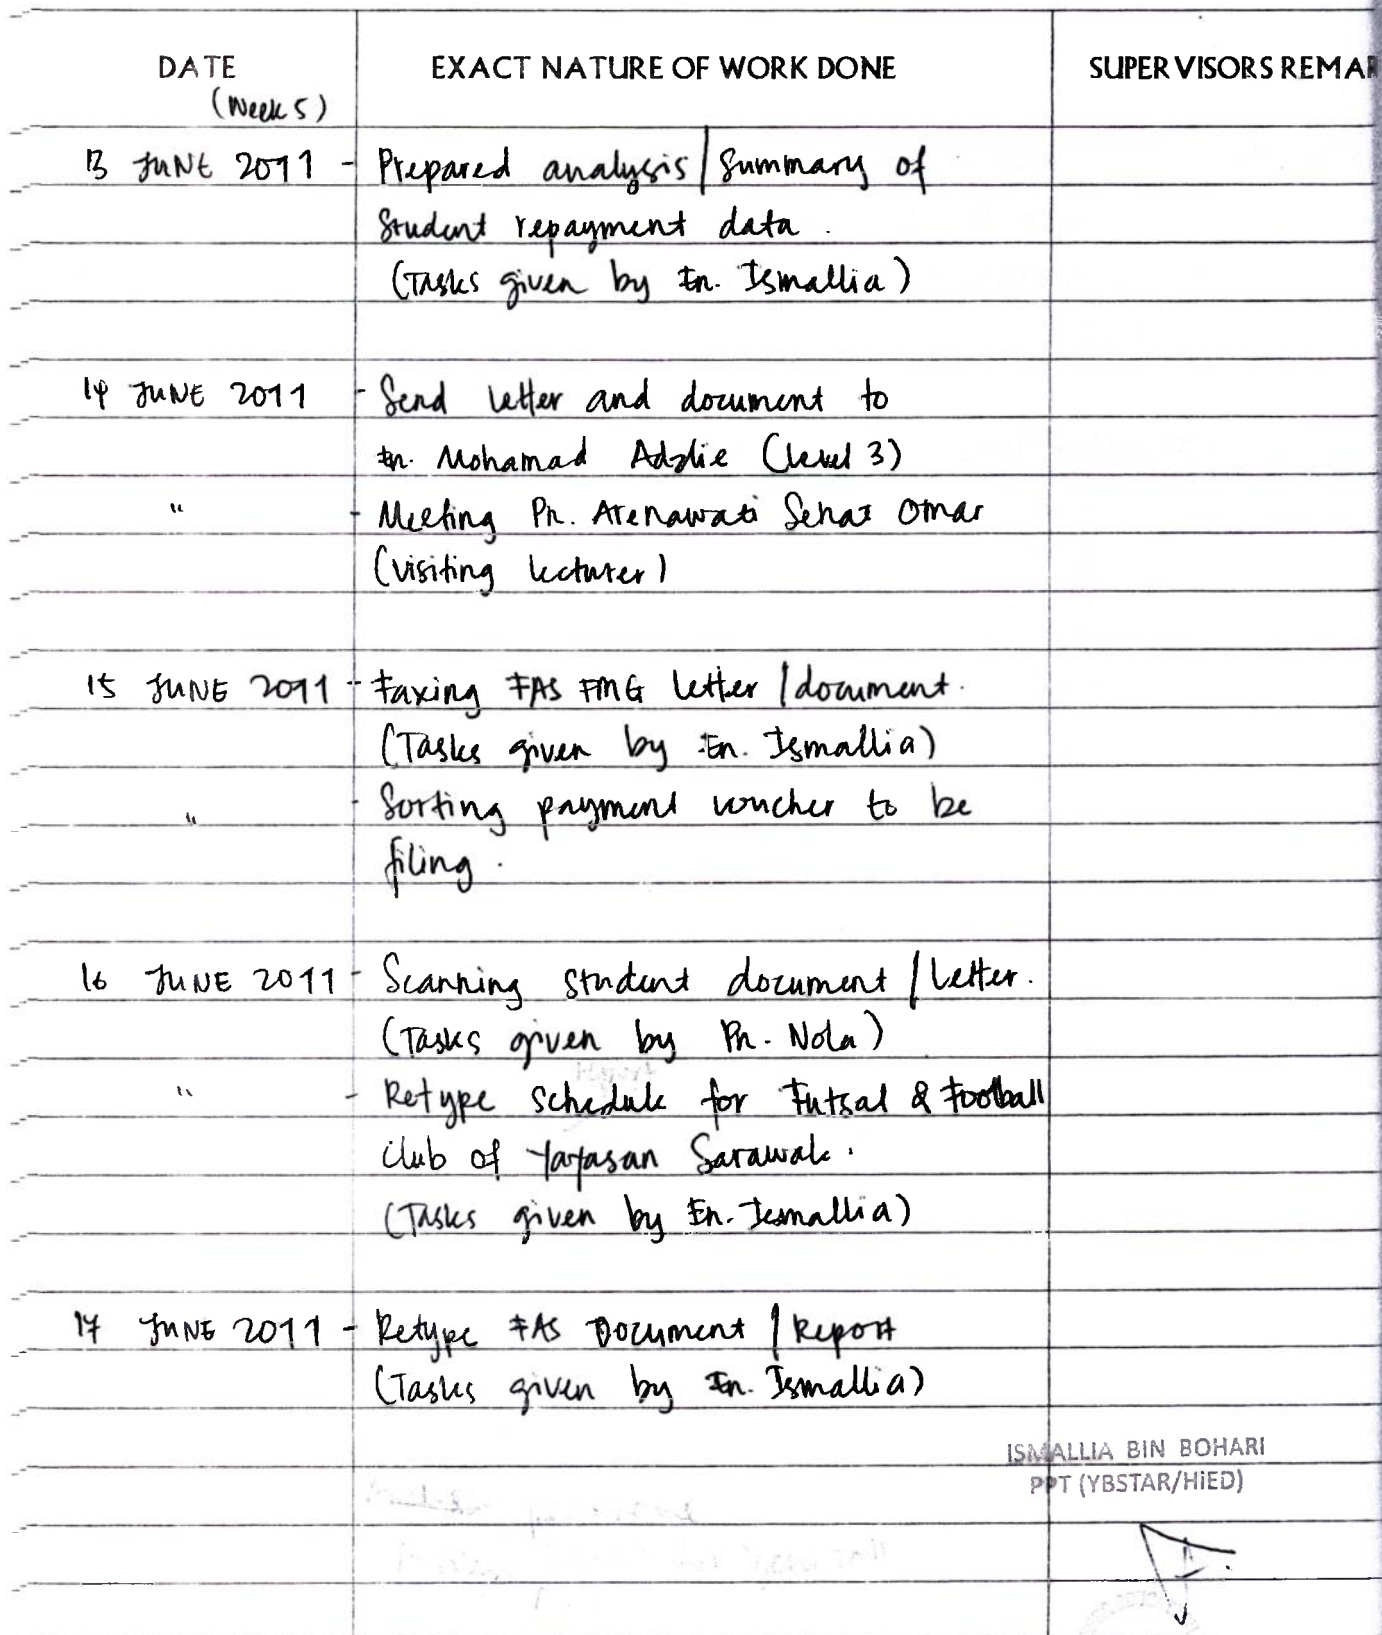 DATE EXACT NATURE OF WORK DONE SUPERVISORS REMAR
(Week 5)
13 JUNE 2011 - Prepared analysis / Summary of
Student repayment data.
(Tasks given by En. Ismallia)
14 JUNE 2011 - Send letter and document to
En. Mohamad Adzlie (level 3)
" - Meeting Pn. Arenawati Sehat Omar
(visiting lecturer)
15 JUNE 2011 - Faxing FAS FMG letter / document.
(Tasks given by En. Ismallia)
" - Sorting payment voucher to be
filing.
16 JUNE 2011 - Scanning student document / letter.
(Tasks given by Pn. Nola)
" - Retype schedule for Futsal & Football
club of Yayasan Sarawak.
(Tasks given by En. Ismallia)
17 JUNE 2011 - Retype FAS Document / Report
(Tasks given by En. Ismallia)
ISMALLIA BIN BOHARI
PPT (YBSTAR/HiED)